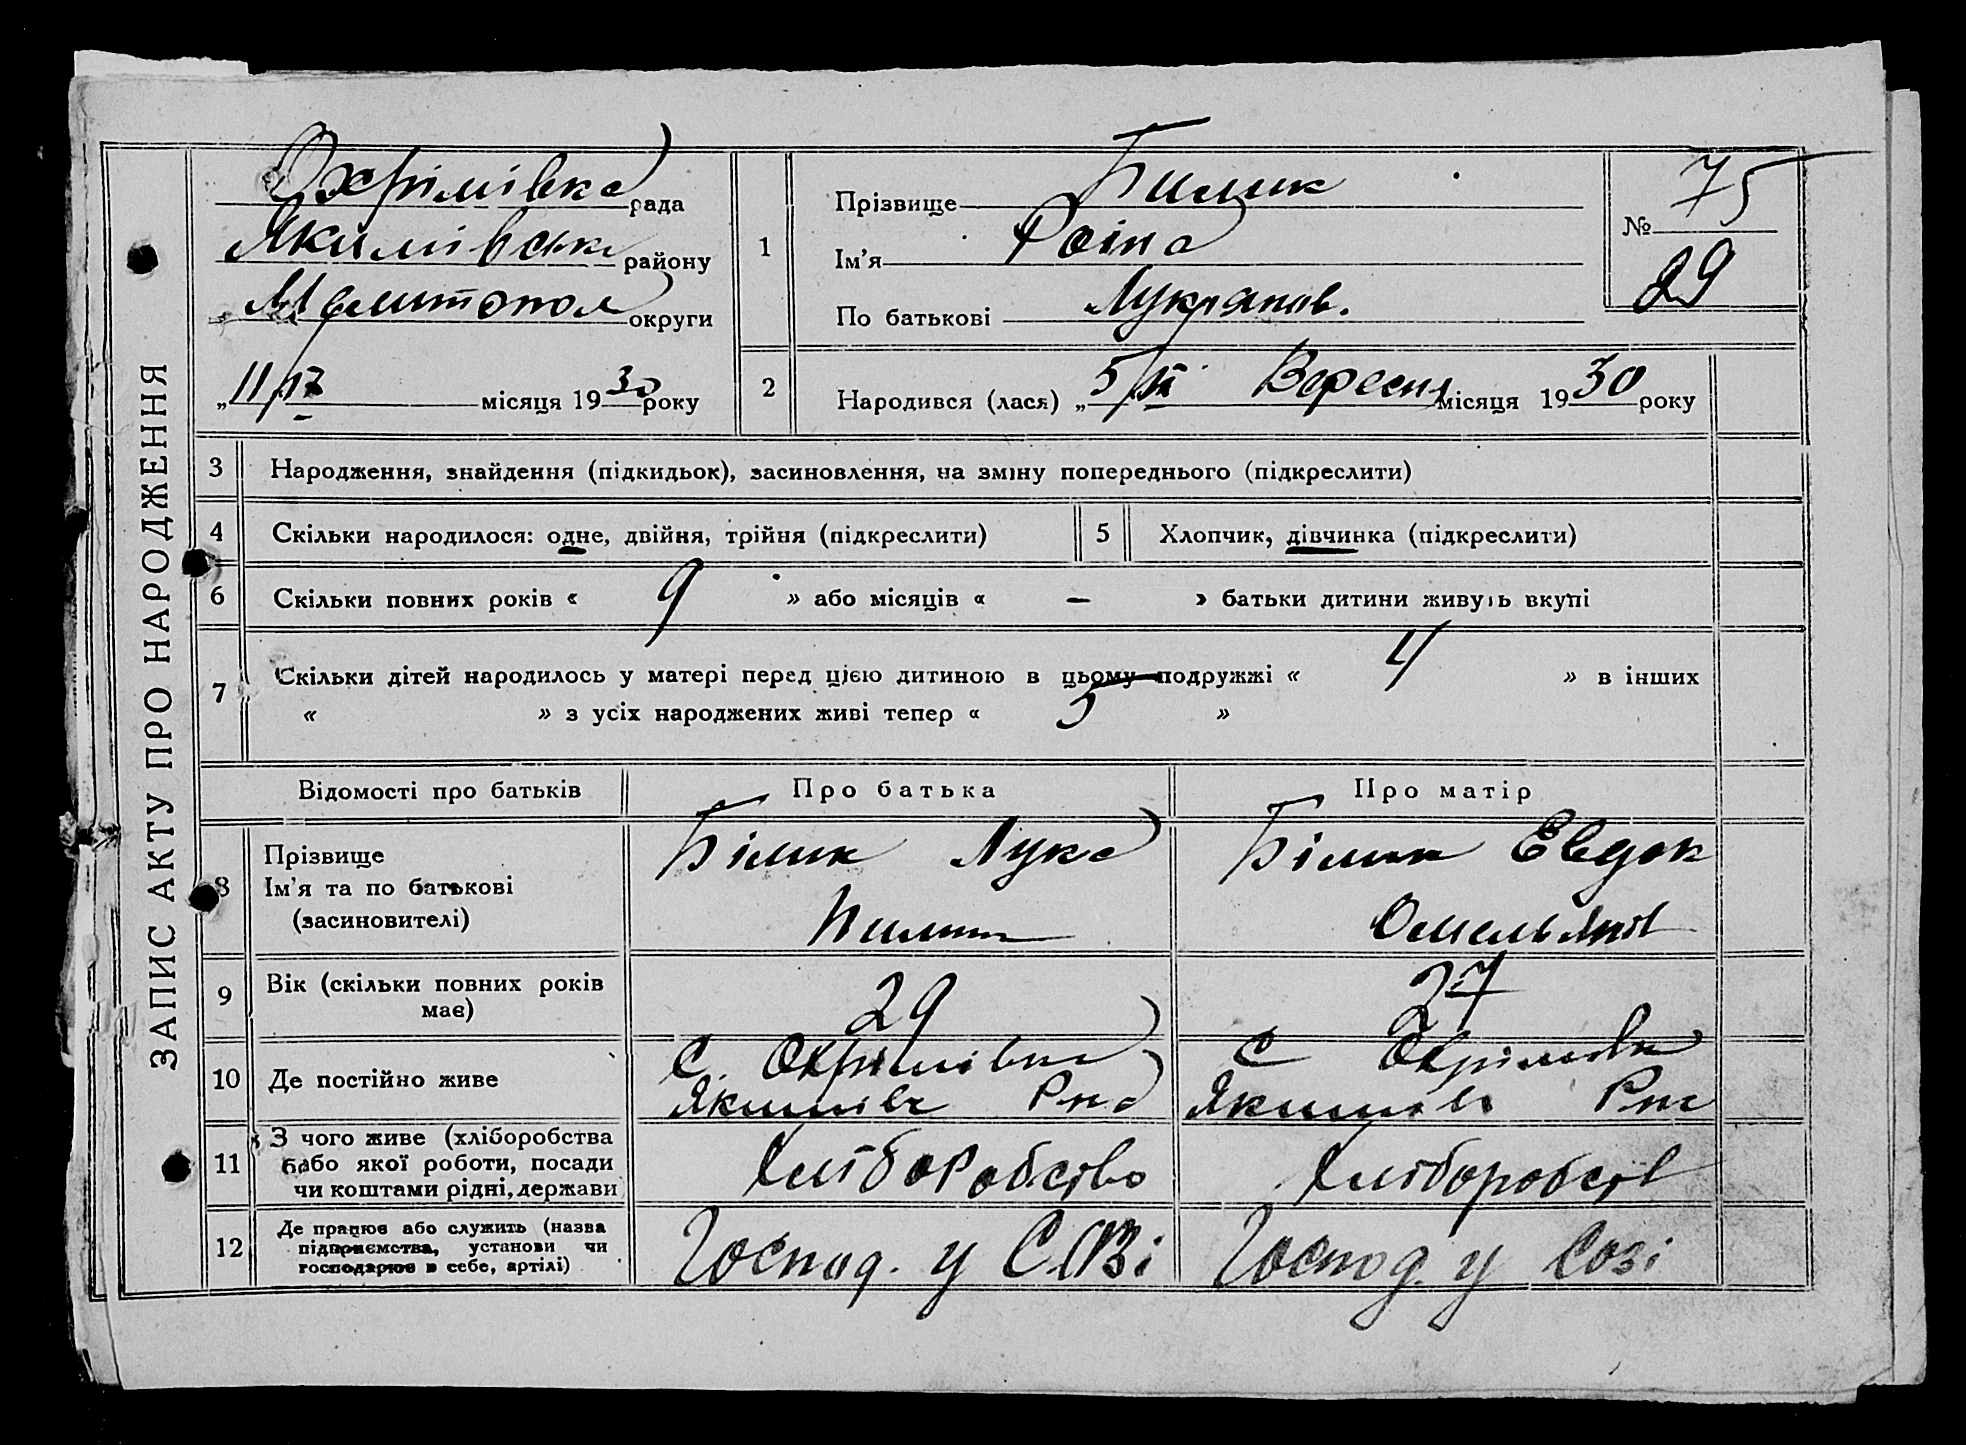 ЗАПИС АКТУ ПРО НАРОДЖЕННЯ
Охрімівка рада
Якимівськ району
Мелитопол округи
„ 11/IX місяця 1930 року
1
Прізвище Билик
Ім'я
По батькові Лукрянов.
№ 75
29
2
Народився (лася) „ 5/IX Вересня місяця 1930 року
3 Народження, знайдення (підкидьок), засиновлення, на зміну попереднього (підкреслити)
4 Скільки народилося: одне, двійня, трійня (підкреслити)
5 Хлопчик, дівчинка (підкреслити)
6 Скільки повних років « 9 » або місяців « – » батьки дитини живуть вкупі
7 Скільки дітей народилось у матері перед цією дитиною в цьому подружжі « 4 » в інших
« » з усіх народжених живі тепер « 5 »
Відомості про батьків Про батька Про матір
8 Прізвище
Ім'я та по батькові
(засиновителі)
Білик Лука
Пилип
Білик Евдок
Омельянів
9 Вік (скільки повних років має)
29
27
10 Де постійно живе
С. Охрімівка
Якимівс Р-на
С Охрімівка
Якимів Р-на
11 З чого живе (хліборобства
або якої роботи, посади
чи коштами рідні, держави
Хліборобство
Хліборобств
12 Де працює або служить (назва
підприємства, установи чи
господарює в себе, артілі)
Господ. у Созі
Господ. у Созі